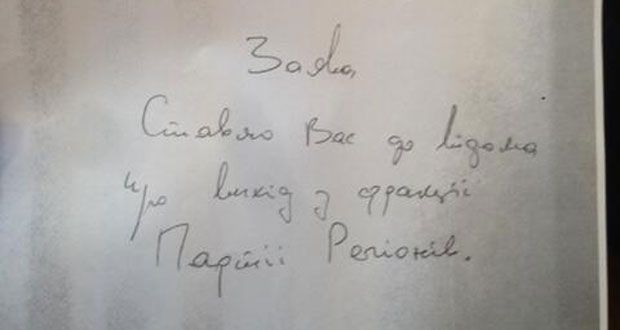 Заява
Ставлю Вас до відома
про вихід з фракції
Партії Регіонів.